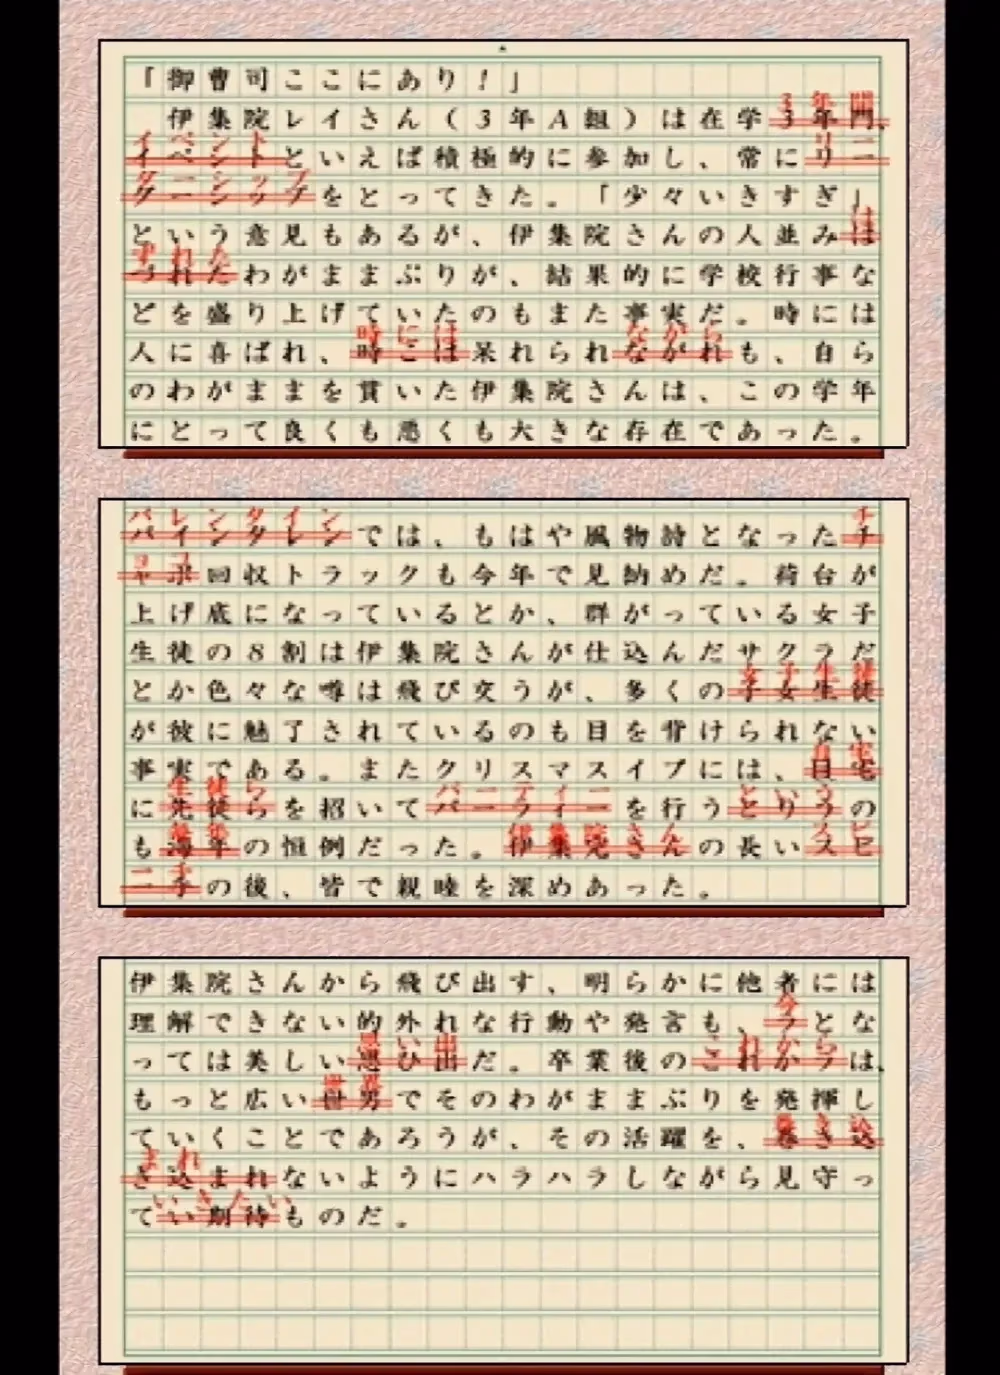 「御曹司ここにあり！」
3年間
伊集院レイさん（3年A組）は在学3年門、
イベント リー
イペントといえば積極的に参加し、常にリニ
ダーシップ
クーシップをとってきた。「少々いきすぎ」
は
という意見もあるが、伊集院さんの人並みは
ずれた
づれたわがままぶりが、結果的に学校行事な
どを盛り上げていたのもまた事実だ。時には
時には ながら
人に喜ばれ、時こは呆れられながれも、自ら
のわがままを貫いた伊集院さんは、この学年
にとって良くも悪くも大きな存在であった。
バレンタイン チ
バインタレンでは、もはや風物詩となったチ
ョコ
ャポ回収トラックも今年で見納めだ。荷台が
上げ底になっているとか、群がっている女子
生徒の8割は伊集院さんが仕込んだサクラだ
女子生徒
とか色々な噂は飛び交うが、多くの子女生徒
が彼に魅了されているのも目を背けられない
自宅
事実である。またクリスマスイブには、目宅
生徒ら パーティー という
に先徒らを招いてパーライーを行うとりうの
毎年 伊集院さん スピ
も海年の恒例だった。伊集完きんの長いスヒ
ーチ
ー子の後、皆で親睦を深めあった。
伊集院さんから飛び出す、明らかに他者には
今
理解できない的外れな行動や発言も、ラとな
思い出 これから
っては美しい思ひ出だ。卒業後のこれかラは、
世界
もっと広い世男でそのわがままぶりを発揮し
巻き込
ていくことであろうが、その活躍を、巻き込
まれ
き込まれないようにハラハラしながら見守っ
いきたい
てい期待ものだ。